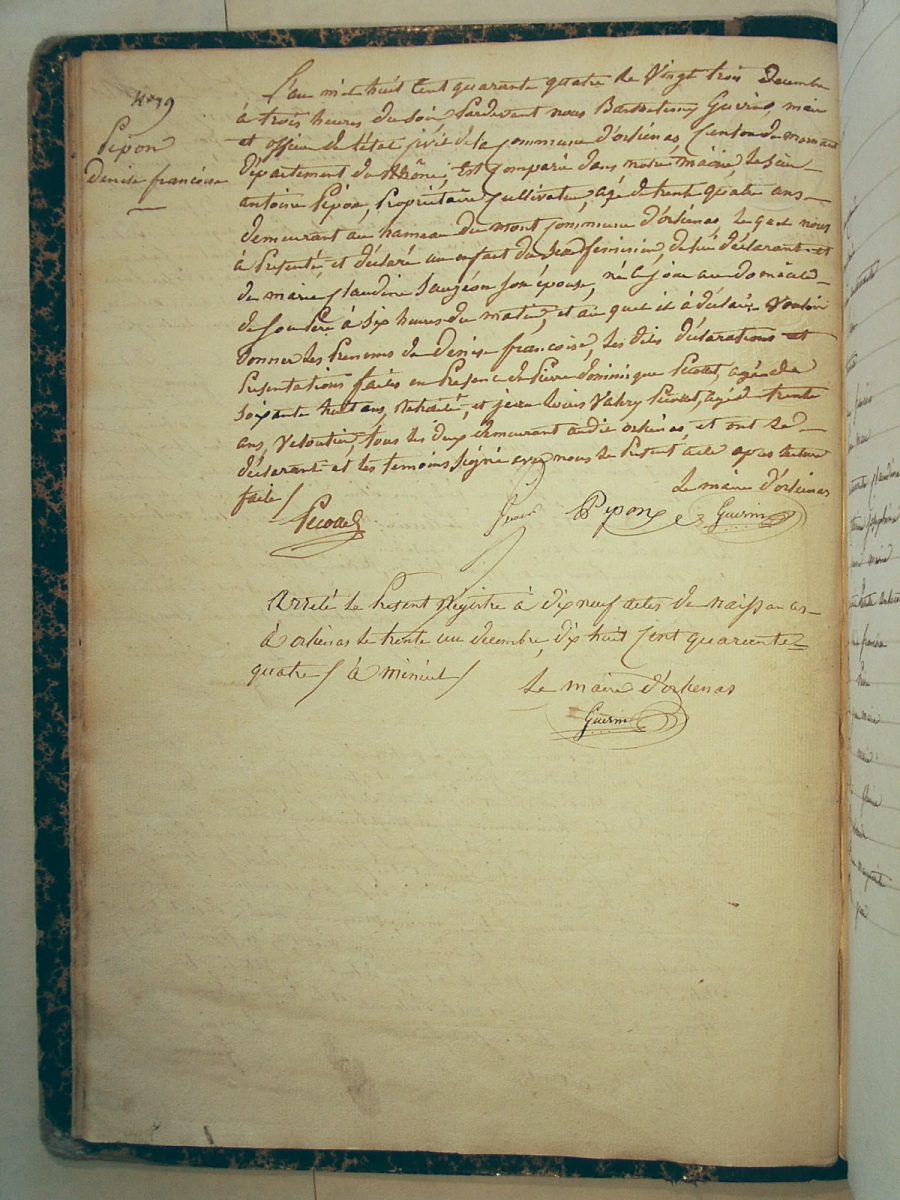 N° 19
Pipon
Denise françoise
L'an mil huit Cent quarante quatre le Vingt trois decembre
à trois heures du soir Pardevant nous Barthelemy Guerin, maire
et officier de l'état civil de la Commune d'orliénas, Canton de mornant
Département du Rhône, Est Comparu dans notre mairie, le sieur
antoine Pipon, Propriétaire Cultivateur, agé de trente quatre ans
demeurant au hameau du mont Commune d'orliénas, Lequel nous
à Présenté, et déclaré un enfant du sexe féminin, de lui déclarant et
de marie Claudine son épouse, né ce jour au domicile
de son Père à Six heures du matin, et au quel il à déclaré Vouloir
donner les Prenoms de Denise françoise, les dites déclarations et
Présentations faites en Présence de Pierre dominique Picollet, agé de
soixante huit ans, et jean Louis Valery Picollet, agé de trente
ans, Veloutier, tous les deux demeurant audit orliénas, et ont le
déclarant et les temoins Signé avec nous le Présent acte apres lecture
faite /
Le maire d'orlienas
Picollet Pipon Guerin
Arrêté le Present Régistre à dix neuf actes de naissances
à orliénas le trente un decembre, dix huit Cent quarente
quatre / à minuit /
Le maire d'orlienas
Guerin